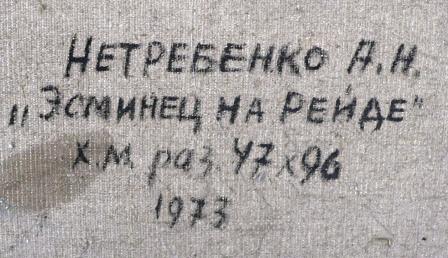 НЕТРЕБЕНКО А.Н.
„ЭСМИНЕЦ НА РЕЙДЕ"
Х.М. раз. 47х96
1973